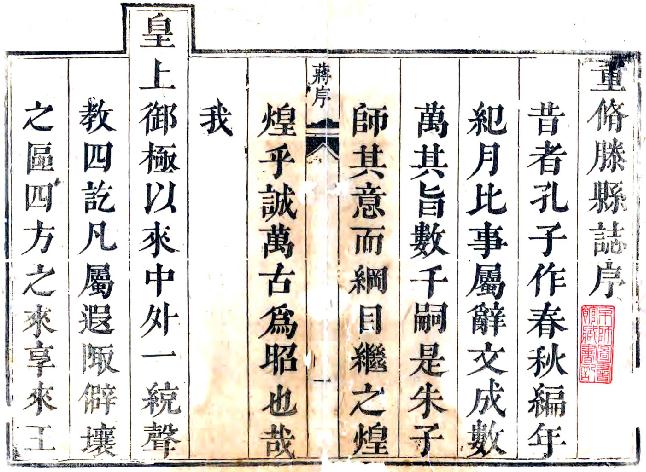 重脩滕縣誌序
昔者孔子作春秋編年
紀月比事屬辭文成數
萬其旨數千嗣是朱子
師其意而綱目繼之煌
蔣序
一
煌乎誠萬古爲昭也哉
我
皇上御極以來中外一統聲
教四訖凡屬遐陬僻壤
之區四方之來享來王